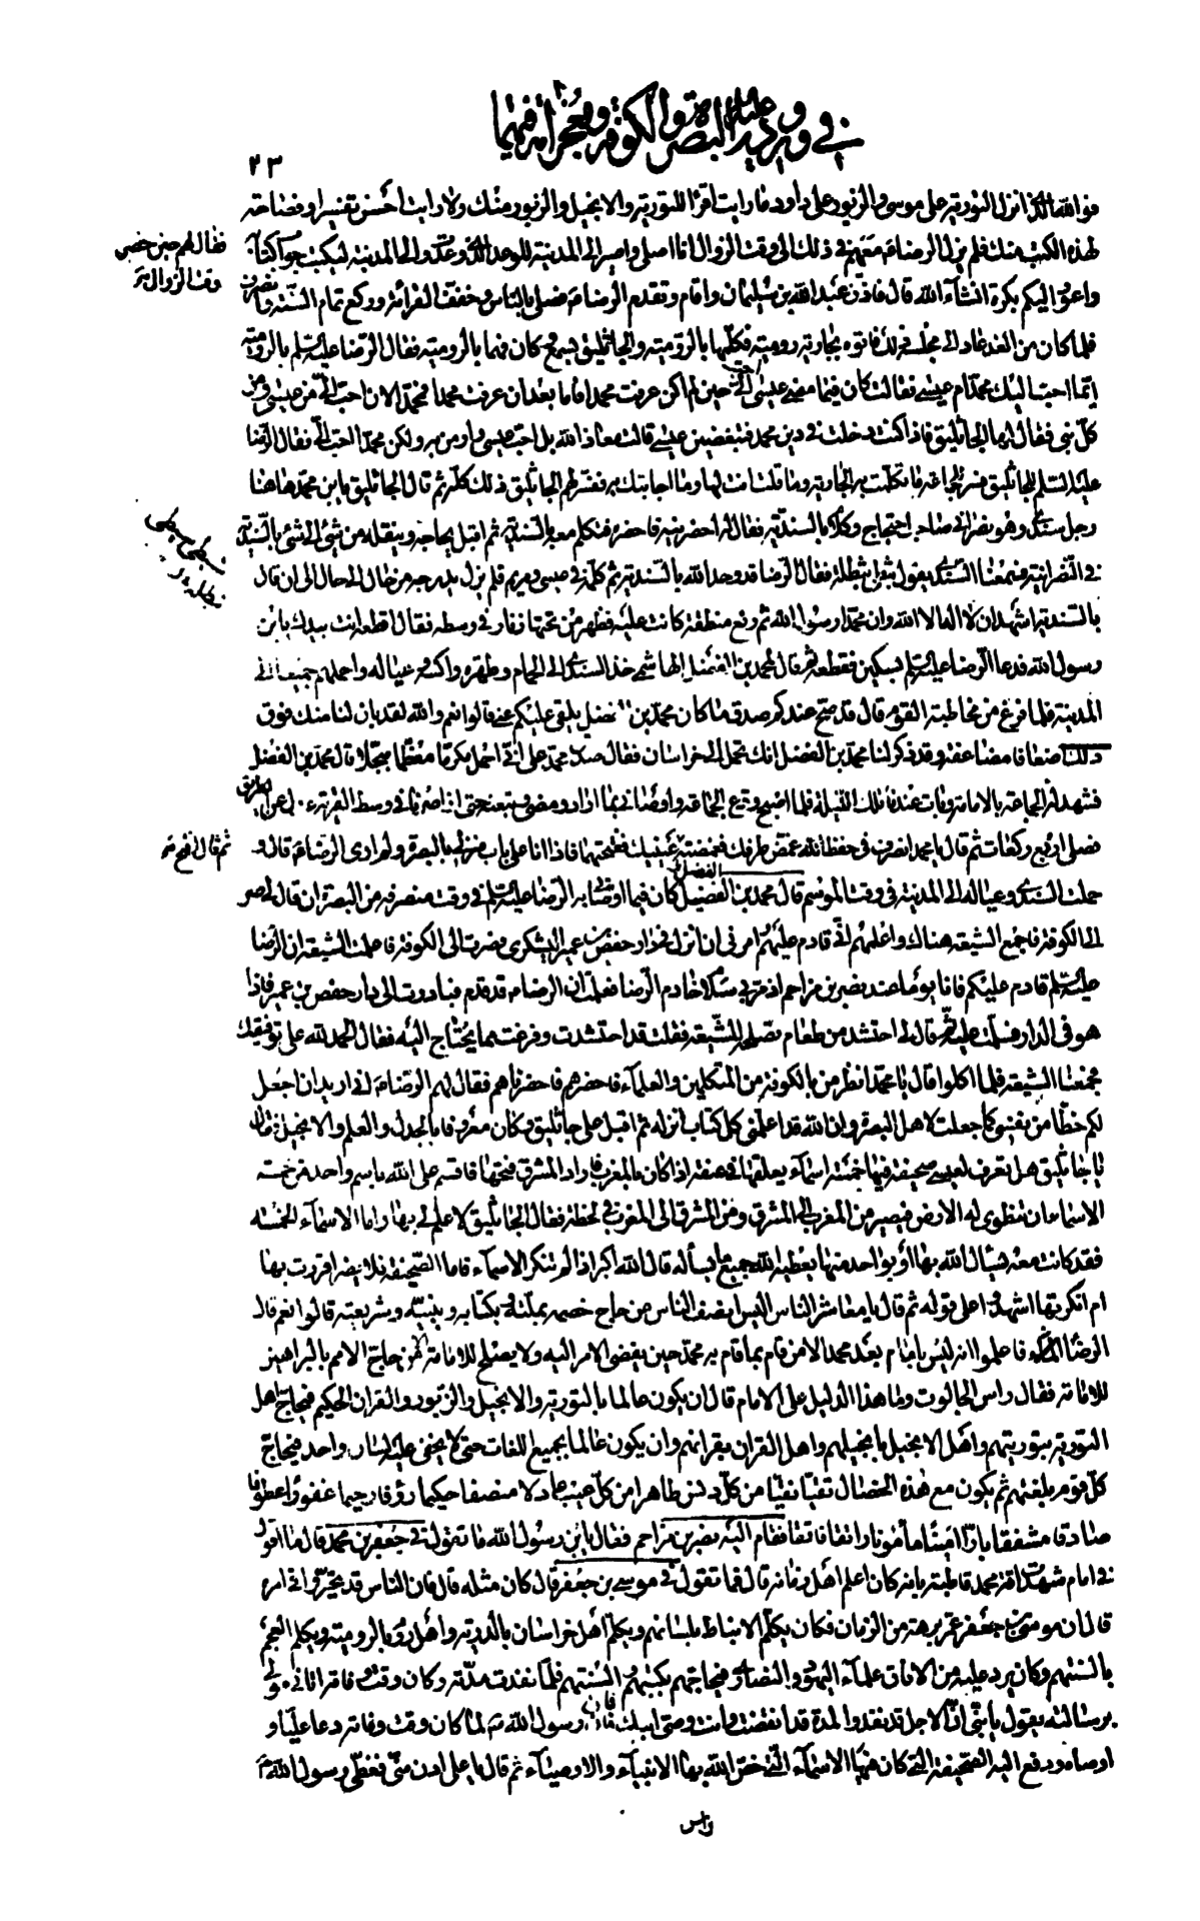 في وروده عليه السلام البصرة والكوفة ومعجزاته فيهما
٢٣
فوالله الذي انزل التورية على موسى والزبور على داود ما رايت اقرأ للتورية والانجيل والزبور منك ولا رايت احسن تفسيرا وفصاحة
لهذه الكتب منك فلم يزل الرضا معهم في ذلك الى وقت الزوال انا اصلي واصير الى المدينة للوعد الذي وعدت والي المدينة ليكتب جواب كتابه
فقال لهم حين حضر
وقت الزوال
واعود اليكم بكرة انشاء الله قال فاذن عبد الله بن سليمان واقام وتقدم الرضا فصلى بالناس وخفف القرائة وركع تمام السنة وانصرف
فلما كان من الغد عاد الى مجلسه ذلك فاتوه بجارية رومية فكلمها بالرومية والجاثليق يسمع كان فهما بالرومية فقال الرضا عليه السلم بالرومية
ايما احب اليك محمد ام عيسى فقالت كان فيما مضى عيسى احب الي حين لم اكن عرفت محمدا فاما بعد ان عرفت محمدا فمحمد الان احب الي من عيسى ومن
كل نبي فقال لها الجاثليق فاذا كنت دخلت في دين محمد فتبغضين عيسى قالت معاذ الله بل احب عيسى واومن به ولكن محمدا احب الي فقال الرضا
عليه السلم للجاثليق فسر للجماعة ما تكلمت به الجارية وما قلت انت لها وما اجابتك به ففسر لهم الجاثليق ذلك كله ثم قال الجاثليق يا بن محمد هاهنا
رجل سندي وهو نصراني صاحب احتجاج وكلام بالسندية فقال له احضرنيه فاحضره فتكلم معه بالسندية ثم اقبل يحاجه وينقله من شئ الى شئ بالسندية
في النصرانية فسمعنا السندي يقول فقال الرضا قد وحد الله بالسندية ثم كلمه في عيسى ومريم فلم يزل يدرجه من حال الى حال الى ان قال
بالسندية اشهد ان لا اله الا الله وان محمدا رسول الله ثم رفع منطقة كانت عليه فظهر من تحتها زنار في وسطه فقال اقطعه انت بيدك يا بن
رسول الله فدعا الرضا عليه السلم بسكين فقطعه ثم قال لمحمد بن الفضل الهاشمي خذ السندي الى الحمام وطهره واكسه وعياله واحملهم جميعا الى
المدينة فلما فرغ من مخاطبة القوم قال قد صح عندكم صدق ما كان محمد بن الفضل يلقي عليكم عني قالوا نعم والله لقد بان لنا منك فوق
ذلك اضعافا مضاعفة وقد ذكر لنا محمد بن الفضل انك تحمل الى خراسان فقال صدق محمد على اني احمل مكرما معظما مبجلا قال محمد بن الفضل
فشهد له الجماعة بالامامة وبات عندنا تلك الليلة فلما اصبح ودع الجماعة واوصاني بما اراد ومضى وتبعته حتى اذا صرنا في وسط القرية عدل عن الطريق
فصلى اربع ركعات ثم قال يا محمد انصرف في حفظ الله غمض طرفك فغمضته عينيك ففتحتهما فاذا انا على باب منزلي بالبصرة ولم ار الرضا قال و
ثم قال افتح
حملت السندي وعياله الى المدينة في وقت الموسم قال محمد بن الفضل كان فيما اوصاني به الرضا عليه السلم في وقت منصرفه من البصرة ان قال لي صر
الى الكوفة فاجمع الشيعة هناك واعلمهم اني قادم عليهم وامرني ان انزل في دار حفص بن عمير اليشكري فصرت الى الكوفة فاعلمت الشيعة ان الرضا
عليه السلم قادم عليكم فانا يوما عند نصر بن مزاحم اذ مر بي سلام خادم الرضا فعلمت ان الرضا قد قدم فبادرت الى دار حفص بن عمير فاذا
هو في الدار فسلمت عليه ثم قال لي احتشد من طعام تصلحه للشيعة فقلت قد احتشدت وفرغت مما يحتاج اليه فقال الحمد لله على توفيقك
فجمعنا الشيعة فلما اكلوا قال يا محمد انظر من بالكوفة من المتكلمين والعلماء فاحضرهم فاحضرناهم فقال لهم الرضا اني اريد ان اجعل
لكم حظا من نفسي كما جعلت لاهل البصرة وان الله قد اعلمني كل كتاب انزله ثم اقبل على جاثليق وكان معروفا بالجدل والعلم والانجيل فقال
يا جاثليق هل تعرف لعيسى صحيفة فيها خمسة اسماء يعلقها في عنقه اذا كان بالمغرب فاراد المشرق فتحها فاقسم على الله باسم واحد من خمسة
الاسماء ان تنطوي له الارض فيصير من المغرب الى المشرق ومن المشرق الى المغرب في لحظة فقال الجاثليق لا علم لي بها واما الاسماء الخمسة
فقد كانت معه يسأل الله بها او بواحد منها يعطيه الله جميع ما يسأله قال الله اكبر اذا لم تنكر الاسماء فاما الصحيفة فلا يضر اقررت بها
ام انكرتها اشهدوا على قوله ثم قال يا معاشر الناس اليس انصف الناس من حاج خصمه بملته وبكتابه وبنبيه وشريعته قالوا نعم قال
الرضا فاعلموا انه ليس بامام بعد محمد الا من قام بما قام به محمد حين يفضي الامر اليه ولا يصلح للامامة الا من حاج الامم بالبراهين
للامامة فقال راس الجالوت وما هذا الدليل على الامام قال ان يكون عالما بالتورية والانجيل والزبور والقران الحكيم فيحاج اهل
التورية بتوريتهم واهل الانجيل بانجيلهم واهل القران بقرانهم وان يكون عالما بجميع اللغات حتى لا يخفى عليه لسان واحد فيحاج
كل قوم بلغتهم ثم يكون مع هذه الخصال تقيا نقيا من كل دنس طاهرا من كل عيب عادلا منصفا حكيما رؤفا رحيما غفورا عطوفا
صادقا مشفقا بارا امينا مأمونا راتقا فاتقا فقام اليه نصر بن مزاحم فقال يا بن رسول الله ما تقول في جعفر بن محمد قال ما اقول
في امام شهدت امة محمد قاطبة بانه كان اعلم اهل زمانه قال فما تقول في موسى بن جعفر قال كان مثله قال فان الناس قد تحيروا في امره
قال ان موسى بن جعفر عمر برهة من الزمان فكان يكلم الانباط بلسانهم ويكلم اهل خراسان بالدرية واهل روم بالرومية ويكلم العجم
بالسنتهم وكان يرد عليه من الافاق علماء اليهود والنصارى فيحاجهم بكتبهم والسنتهم فلما نفدت مدته وكان وقت وفاته اتاني مولى
برسالته يقول يا بني ان الاجل قد نفد والمدة قد انقضت وانت وصي ابيك فان رسول الله لما كان وقت وفاته دعا عليا و
اوصاه ودفع اليه الصحيفة التي كان فيها الاسماء التي خص الله بها الانبياء والاوصياء ثم قال يا علي ادن مني فغطى رسول الله
راس